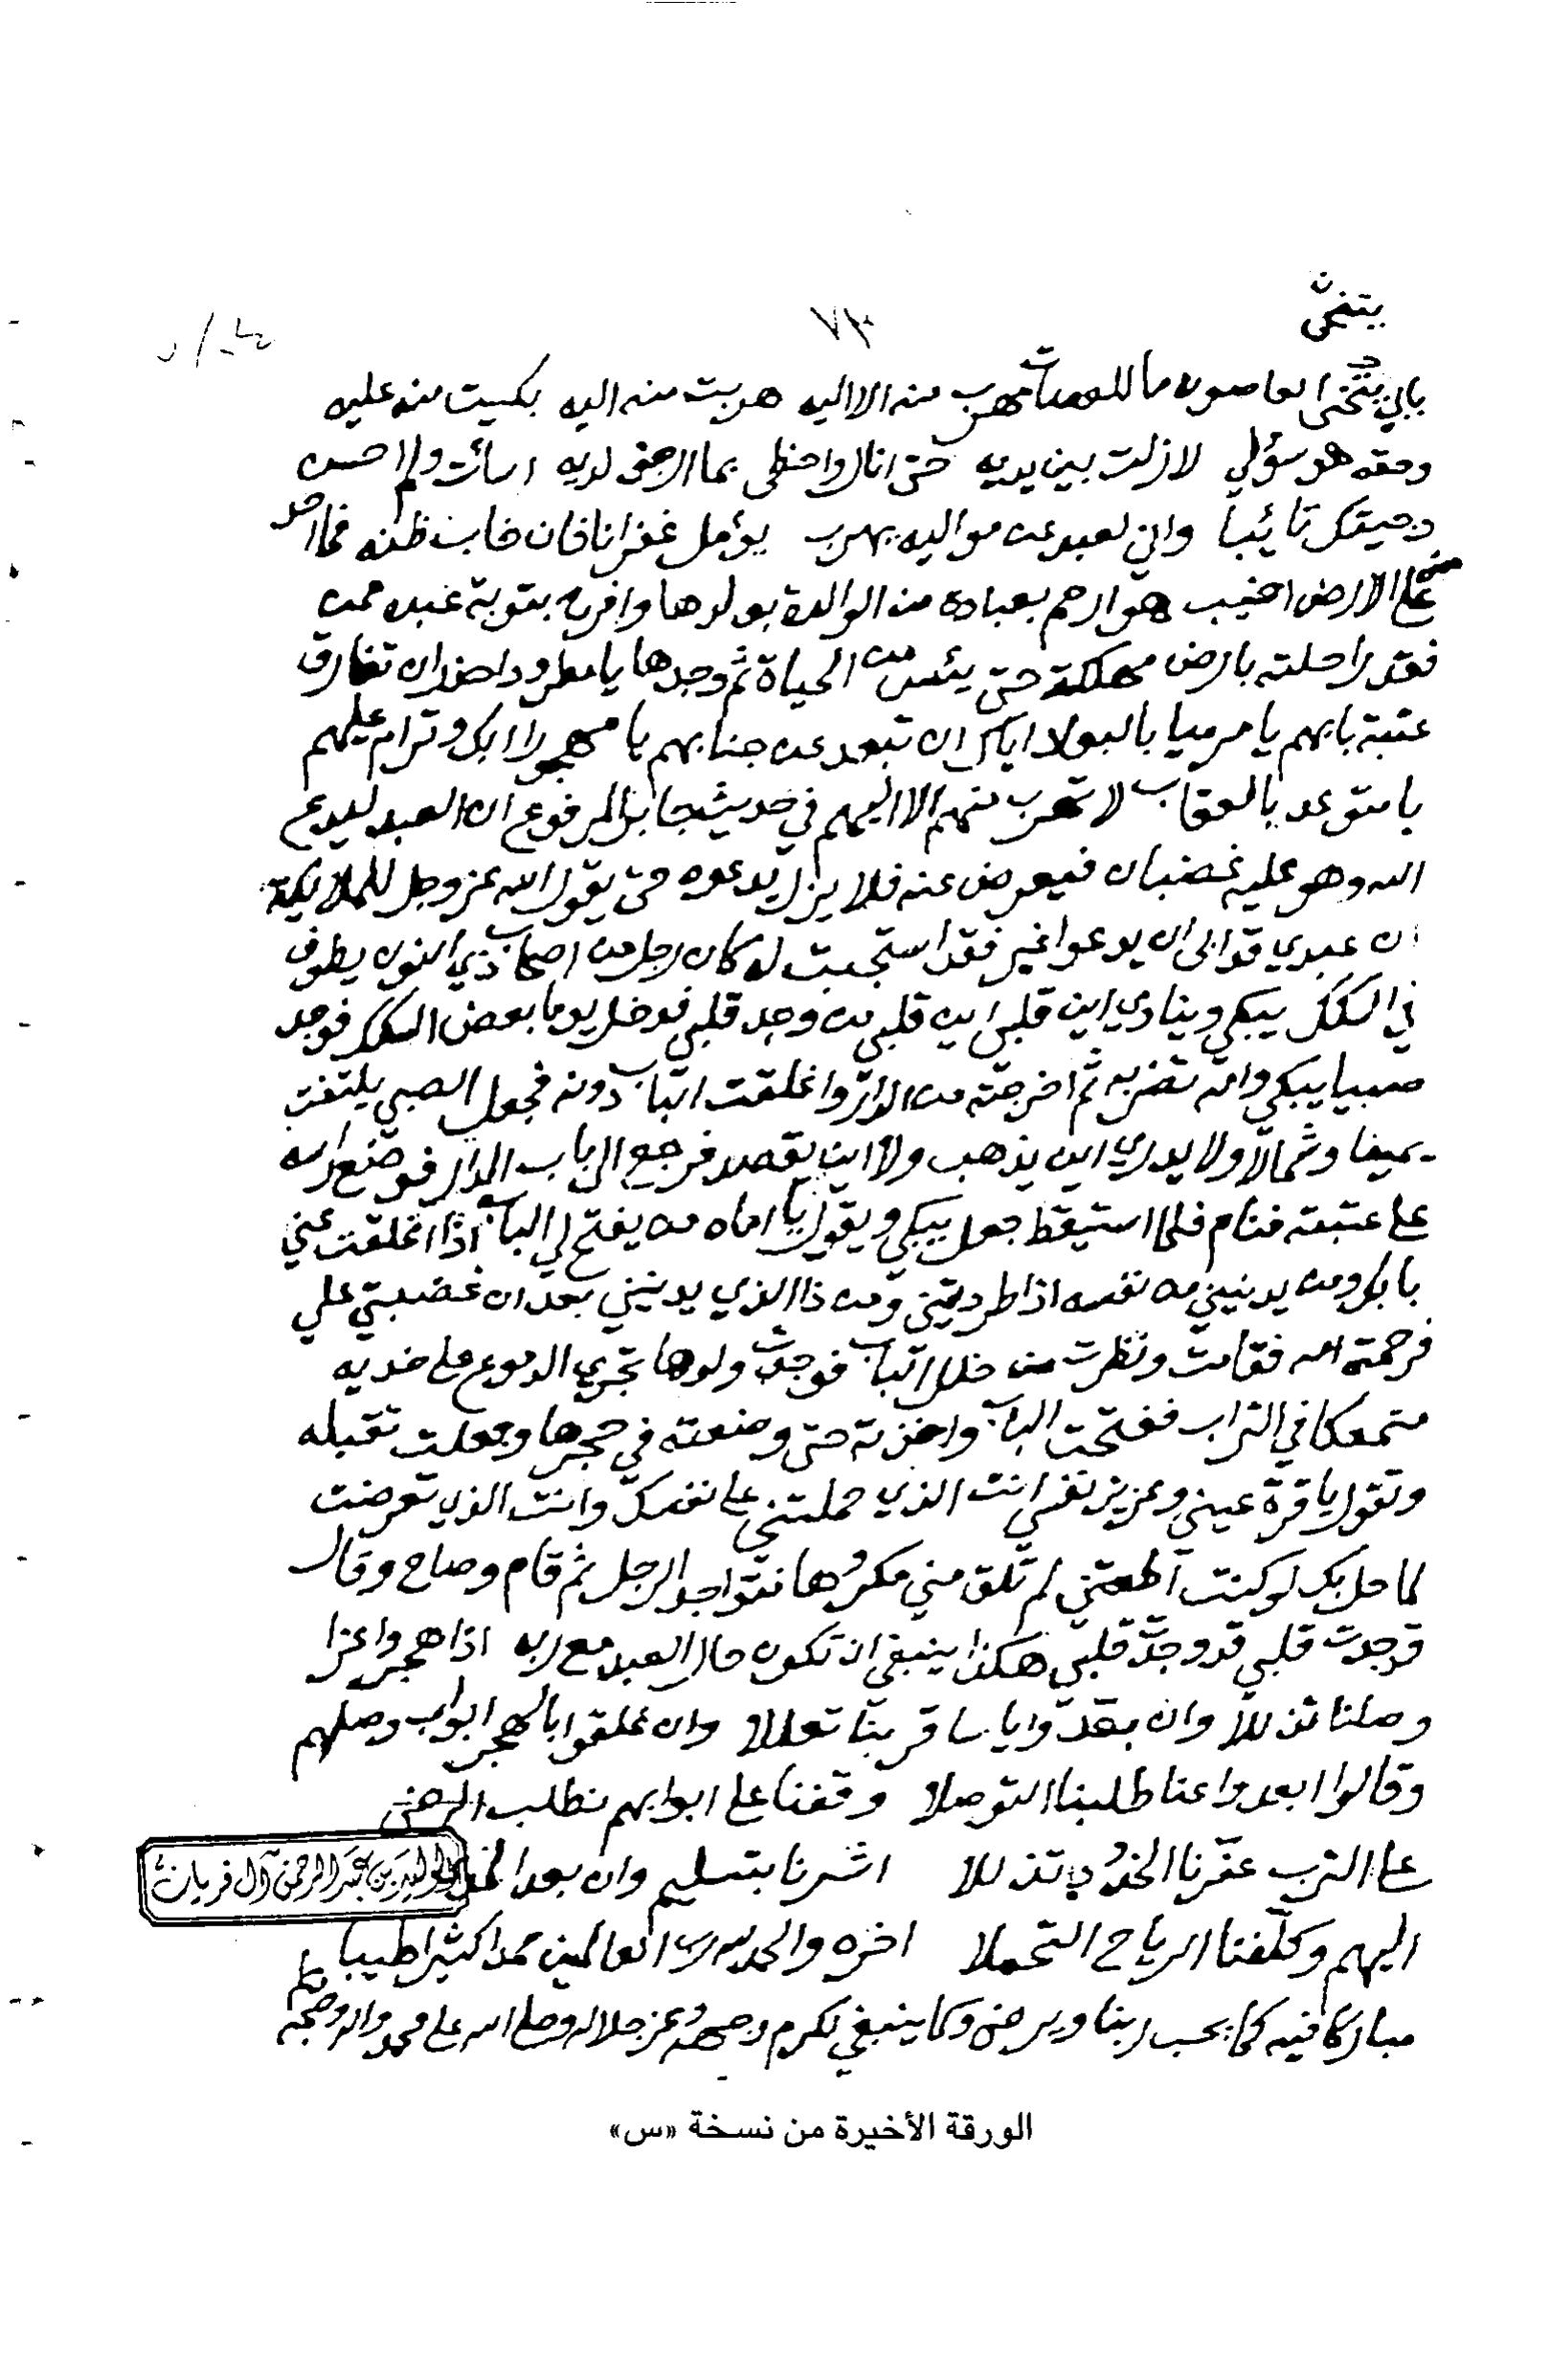 ٧٣
يتنخى
بابي يتنخى العاصون ما للعصاة مهرب منه الا اليه هربت منه اليه بكيت منه عليه
وحقه هو سؤلي لا زلت بين يديه حتى انال واحظى بما ارتجي لديه اسأت ولم احسن
وجيتك تائبا واني لعبد عن مواليه يهرب يؤمل غفرانا فان خاب ظنه فما احد
منه على الارض اخيب هو ارحم بعباده من الوالدة بولدها وافرح بتوبة عبده ممن
فقد راحلته بارض مهلكة حتى يئس من الحياة ثم وجدها يا مطرود احذر ان تفارق
عتبة بابهم يا مرميا بالبعد اياك ان تبعد عن جنابهم يا مهجورا ابك وترام عليهم
يا متوعد بالعقاب لا تهرب منهم الا اليهم في حديث جابر المرفوع ان العبد ليدع
الله وهو عليه غضبان فيعرض عنه فلا يزل يدعوه حتى يقول الله عز وجل للملائكة
ان عبدي قد ابى ان يدعوا غير فقد استجبت له كان رجل من اصحاب ذي النون يطوف
في السكك يبكي وينادي اين قلبي اين قلبي من وجد قلبي فدخل يوما بعض السكك فوجد
صبيا يبكي وامه تضربه ثم اخرجته من الدار واغلقت الباب دونه فجعل الصبي يلتفت
يمينا وشمالا ولا يدري اين يذهب ولا اين يقصد فرجع الى باب الدار فوضع راسه
على عتبته فنام فلما استيقظ جعل يبكي ويقول يا اماه من يفتح لي الباب اذا اغلقت عني
بابك ومن يدنيني من نفسه اذا طردتيني ومن ذا الذي يدنيني بعد ان غضبتي علي
فرحمته امه فقامت ونظرت من خلل الباب فوجدت ولدها تجري الدموع على خديه
متمعكا في التراب ففتحت الباب واخذته حتى وضعته في حجرها وجعلت تقبله
وتقول يا قرة عيني وعزيز نفسي انت الذي حملتني على نفسك وانت الذي تعرضت
لما حل بك لو كنت اطعتني لم تلق مني مكروها فتواجد الرجل ثم قام وصاح وقال
قد وجدت قلبي قد وجدت قلبي هكذا ينبغي ان تكون حال العبد مع ربه اذا هجروا عزا
وصلنا تذللا وان بعدوا ياسا قربنا تعللا وان غلقوا بالهجر ابواب وصلهم
وقالوا ابعدوا عنا طلبنا التوصلا وقفنا على ابوابهم نطلب الرضى
على الترب عفرنا الخدود تذللا اشرنا بتسليم وان بعد
الوليد بن عبد الرحمن آل فريان
اليهم وكلفنا الرياح التحملا اخره والحمد لله رب العالمين حمدا كثيرا طيبا
مباركا فيه كما يحب ربنا ويرضى وكما ينبغي لكرم وجهه وعز جلاله وصلى الله على محمد واله وصحبه وسلم
الورقة الأخيرة من نسخة «س»